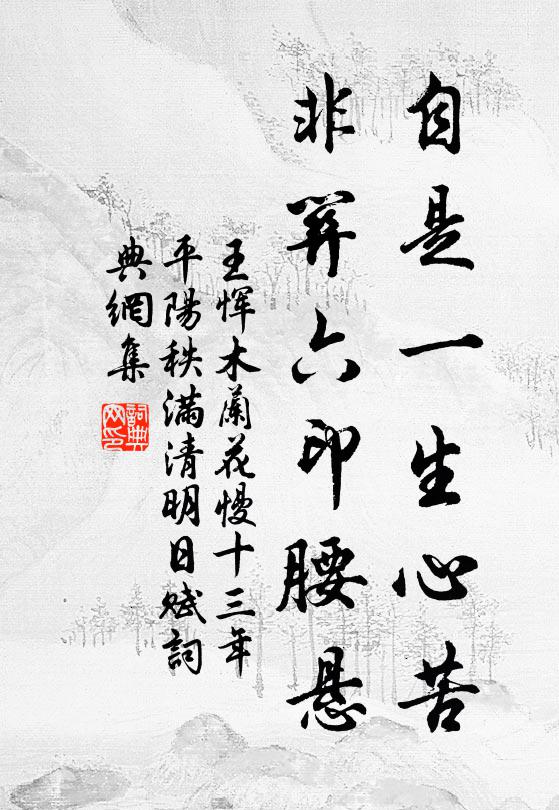 自是一生心苦
非關六印腰懸
王惲木蘭花慢十三年
平陽秩滿清明日賦詞
典網集
詞典网印